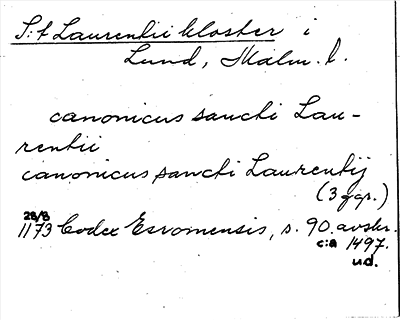 S:t Laurentii kloster i
Lund, Malm. l.
canonicus sancti Lau-
rentii
canonicus sancti Laurentij
(3 ggr.)
28/8
1173 Codex Esromensis, s. 90. avskr.
c:a 1497.
ud.